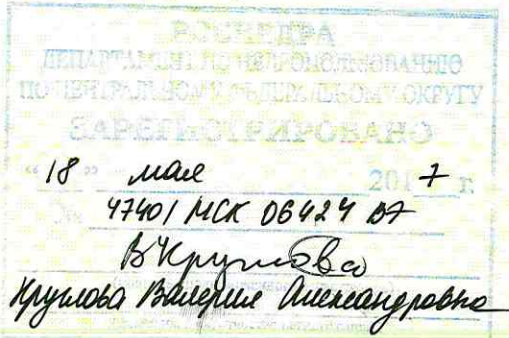 РОСНЕДРА
ДЕПАРТАМЕНТ ПО НЕДРОПОЛЬЗОВАНИЮ
ПО ЦЕНТРАЛЬНОМУ ФЕДЕРАЛЬНОМУ ОКРУГУ
ЗАРЕГИСТРИРОВАНО
"18" мая 2017 г.
№ 47401 МСК 06424 ВЭ
ВКруглова
Круглова Валерия Александровна